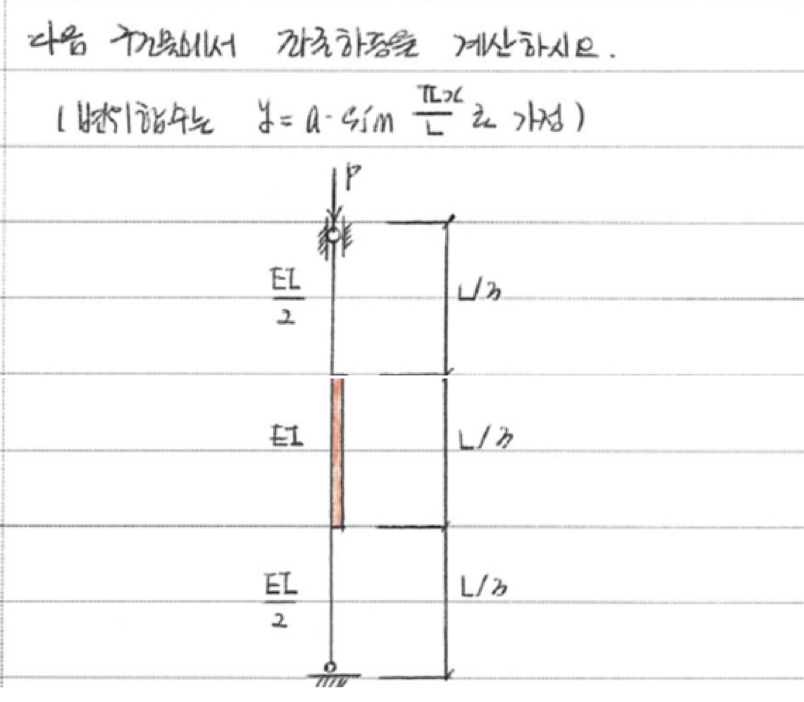 다음 구조물에서 좌굴하중을 계산하시오.
(변위함수는 y = a · sin πx/L 로 가정)
P
EI/2
L/3
EI
L/3
EI/2
L/3